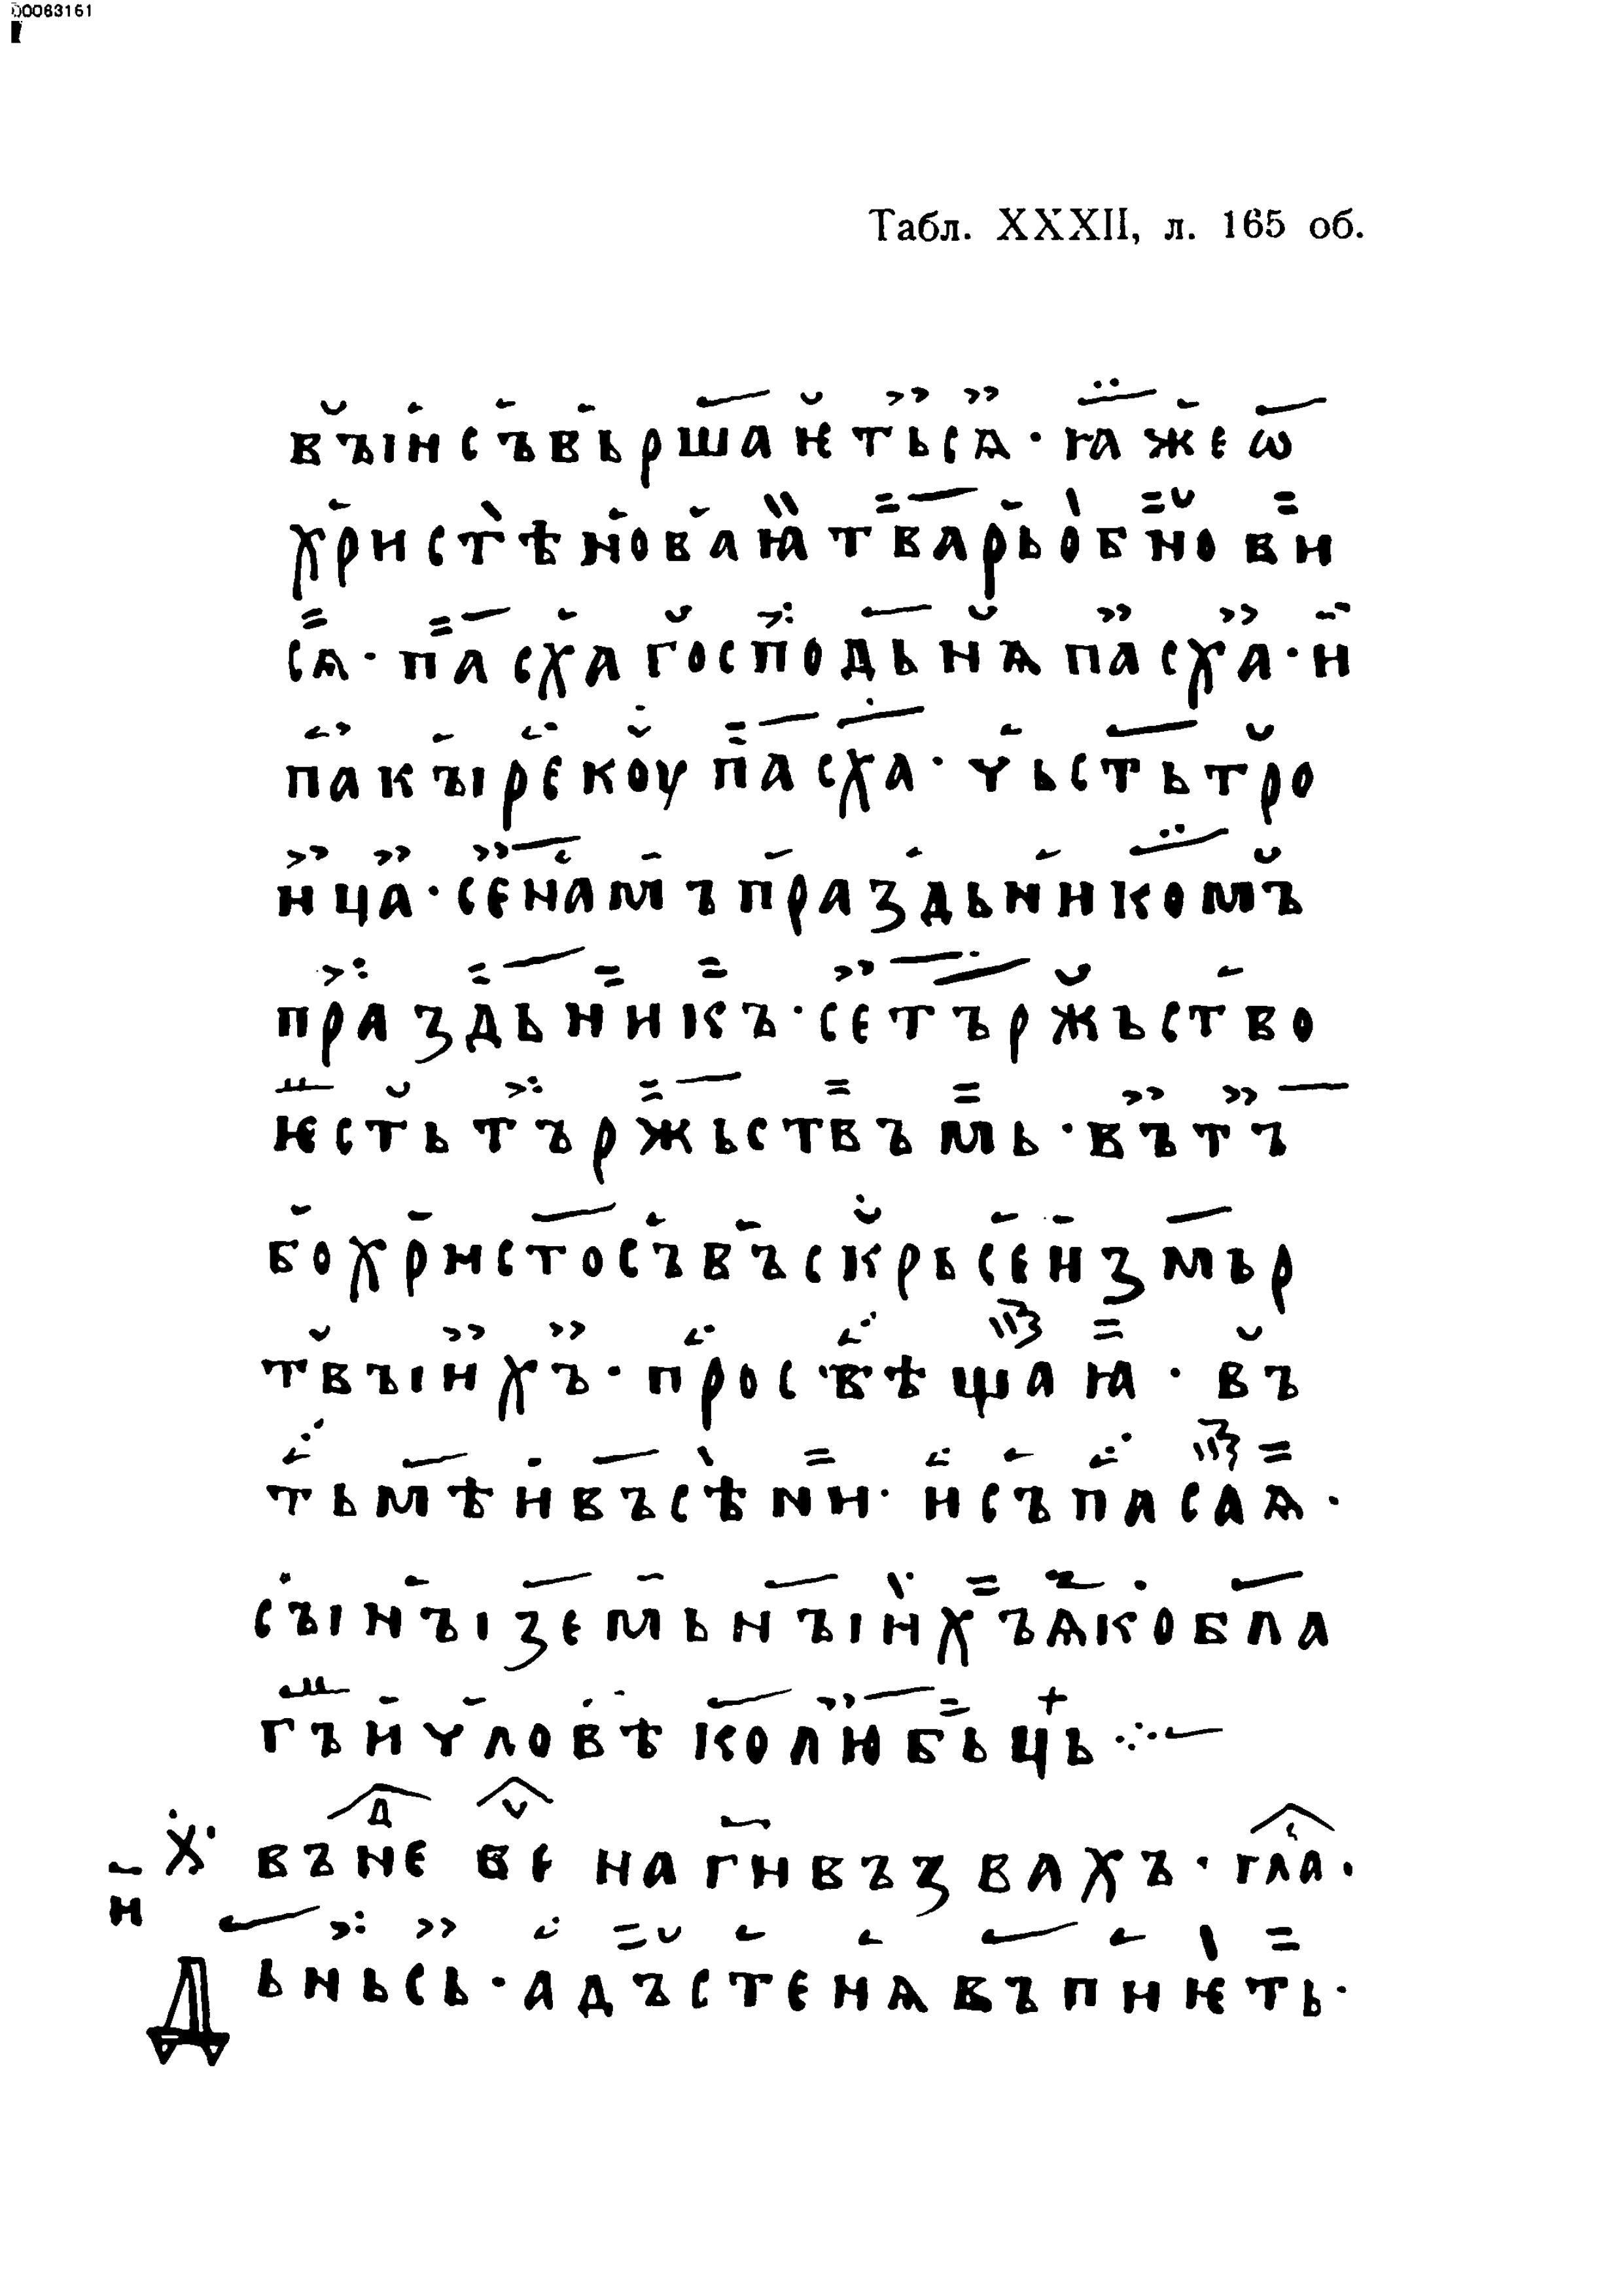 00063161
Табл. XXXII, л. 165 об.
въıисъвьршаѥтьсѧ·ꙗжеѡ
христѣноваꙗтварьобнови
сѧ·пасхагосподьнѧпасха·и
пакъırекоупасха·чьстьтро
ица·сенамъпраздьникомъ
праздьникъ·сетържьство
ѥстьтържьствъмь·вътъ
бохристосъвъскрьсеизмьр
твъıихъ·просвѣщаꙗ·въ
тьмѣивъсѣни·исъпасаѧ·
сънъıземьнъıихъѧкобла
гъичловѣколюбьць
и х въне ве нагивъзвахъ·гла·
Дьньсь·адъстенѧвъпиѥть·